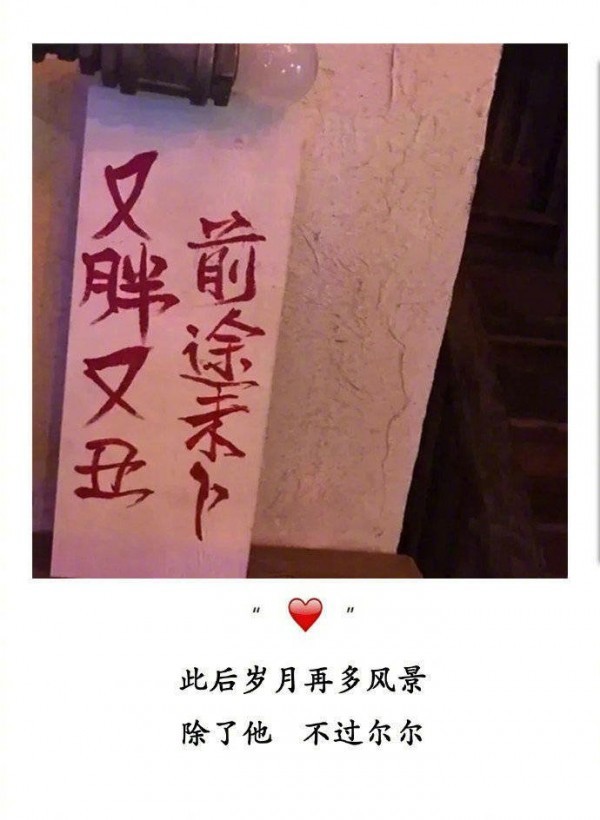 又胖又丑
前途未卜
“ ❤️ ”
此后岁月再多风景
除了他 不过尔尔